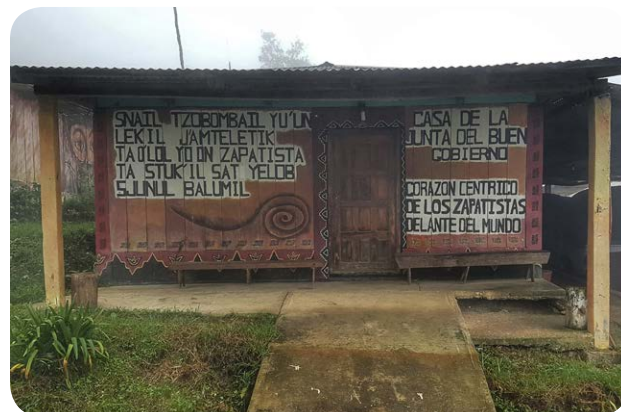 SNAIL TZOBOMBAIL YU'UN
LEKIL J'AMTELETIK
TA O'LOL YO'ON ZAPATISTA
TA STUK'IL SAT YELOB
SJUNUL BALUMIL
CASA DE LA
JUNTA DEL BUEN
GOBIERNO
CORAZON CENTRICO
DE LOS ZAPATISTAS
DELANTE DEL MUNDO